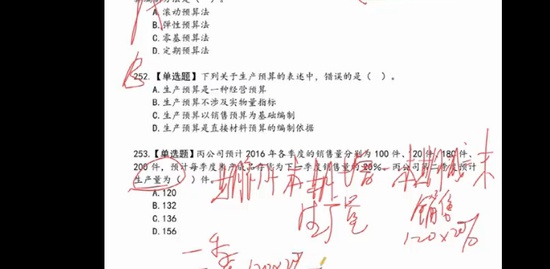 A. 滚动预算法
B. 弹性预算法
C. 零基预算法
D. 定期预算法
B
252. 【单选题】下列关于生产预算的表述中，错误的是（ ）。
A. 生产预算是一种经营预算
B. 生产预算不涉及实物量指标
C. 生产预算以销售预算为基础编制
D. 生产预算是直接材料预算的编制依据
253. 【单选题】丙公司预计 2016 年各季度的销售量分别为 100 件、120 件、180 件、
200 件，预计每季度末产成品存货为下一季度销售量的 20%。丙公司第二季度预计
生产量为（ ）件。
A. 120
B. 132
C. 136
D. 156
期初 本期 本期 末
生产量
销售
120×20%
一季
120×20%